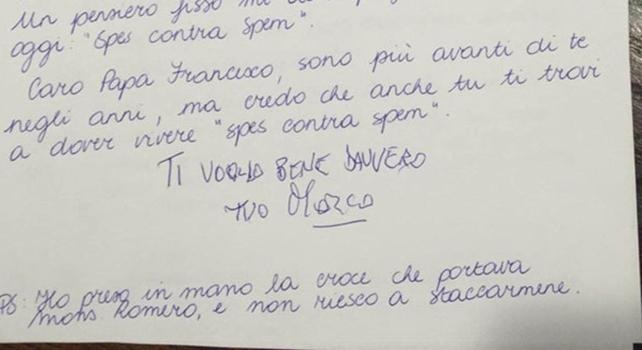 Un pensiero fisso mi
oggi: "Spes contra spem".
Caro Papa Francesco, sono più avanti di te
negli anni, ma credo che anche tu ti trovi
a dover vivere "spes contra spem".
TI VOGLIO BENE DAVVERO
TUO MARCO
PS: Ho preso in mano la croce che portava
mons. Romero, e non riesco a staccarmene.